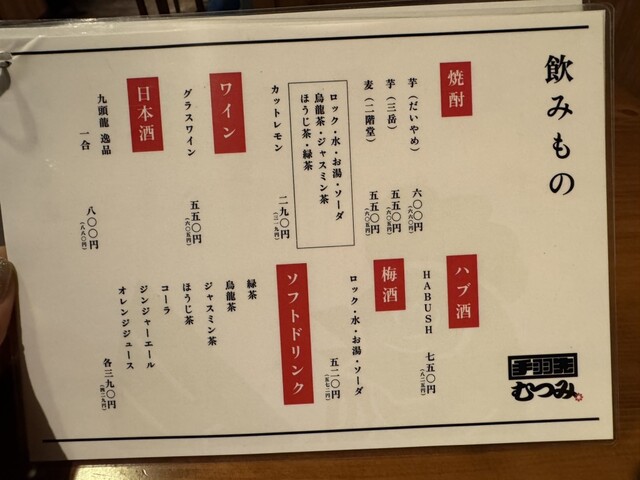 飲みもの
焼酎
芋（だいやめ） 六〇〇円
（六六〇円）
芋（三岳） 五五〇円
（六〇五円）
麦（二階堂） 五五〇円
（六〇五円）
ロック・水・お湯・ソーダ
烏龍茶・ジャスミン茶
ほうじ茶・緑茶
カットレモン 二九〇円
（三一九円）
ワイン
グラスワイン 五五〇円
（六〇五円）
日本酒
九頭龍 逸品
一合 八〇〇円
（八八〇円）
ハブ酒
HABUSH 七五〇円
（八二五円）
梅酒
ロック・水・お湯・ソーダ
五二〇円
（五七二円）
ソフトドリンク
緑茶
烏龍茶
ジャスミン茶
ほうじ茶
コーラ
ジンジャーエール
オレンジジュース
各三九〇円
（四二九円）
手羽売
むつみ